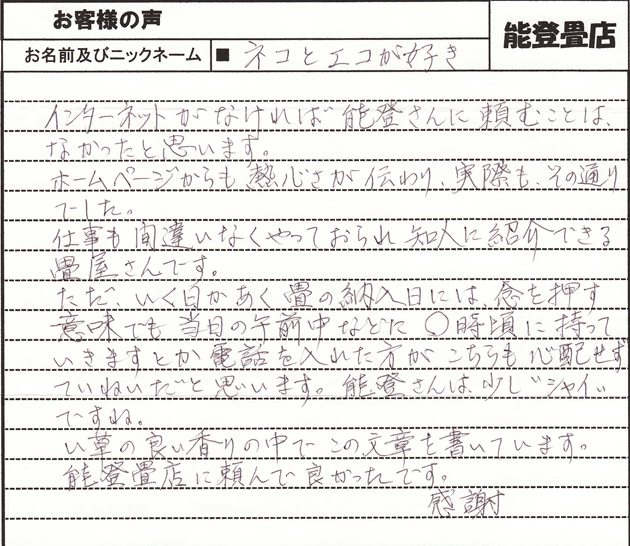 お客様の声
能登畳店
お名前及びニックネーム ■ ネコとエコが好き
インターネットがなければ能登さんに頼むことは、
なかったと思います。
ホームページからも熱心さが伝わり、実際も、その通り
でした。
仕事も間違いなくやっておられ知人に紹介できる
畳屋さんです。
ただ、いく日かあく畳の納入日には、念を押す
意味でも当日の午前中などに〇時頃に持って
いきますとか電話を入れた方がこちらも心配せず
ていねいだと思います。能登さんは、少し"シャイ"
ですね。
い草の良い香りの中でこの文章を書いています。
能登畳店に頼んで良かったです。
感謝